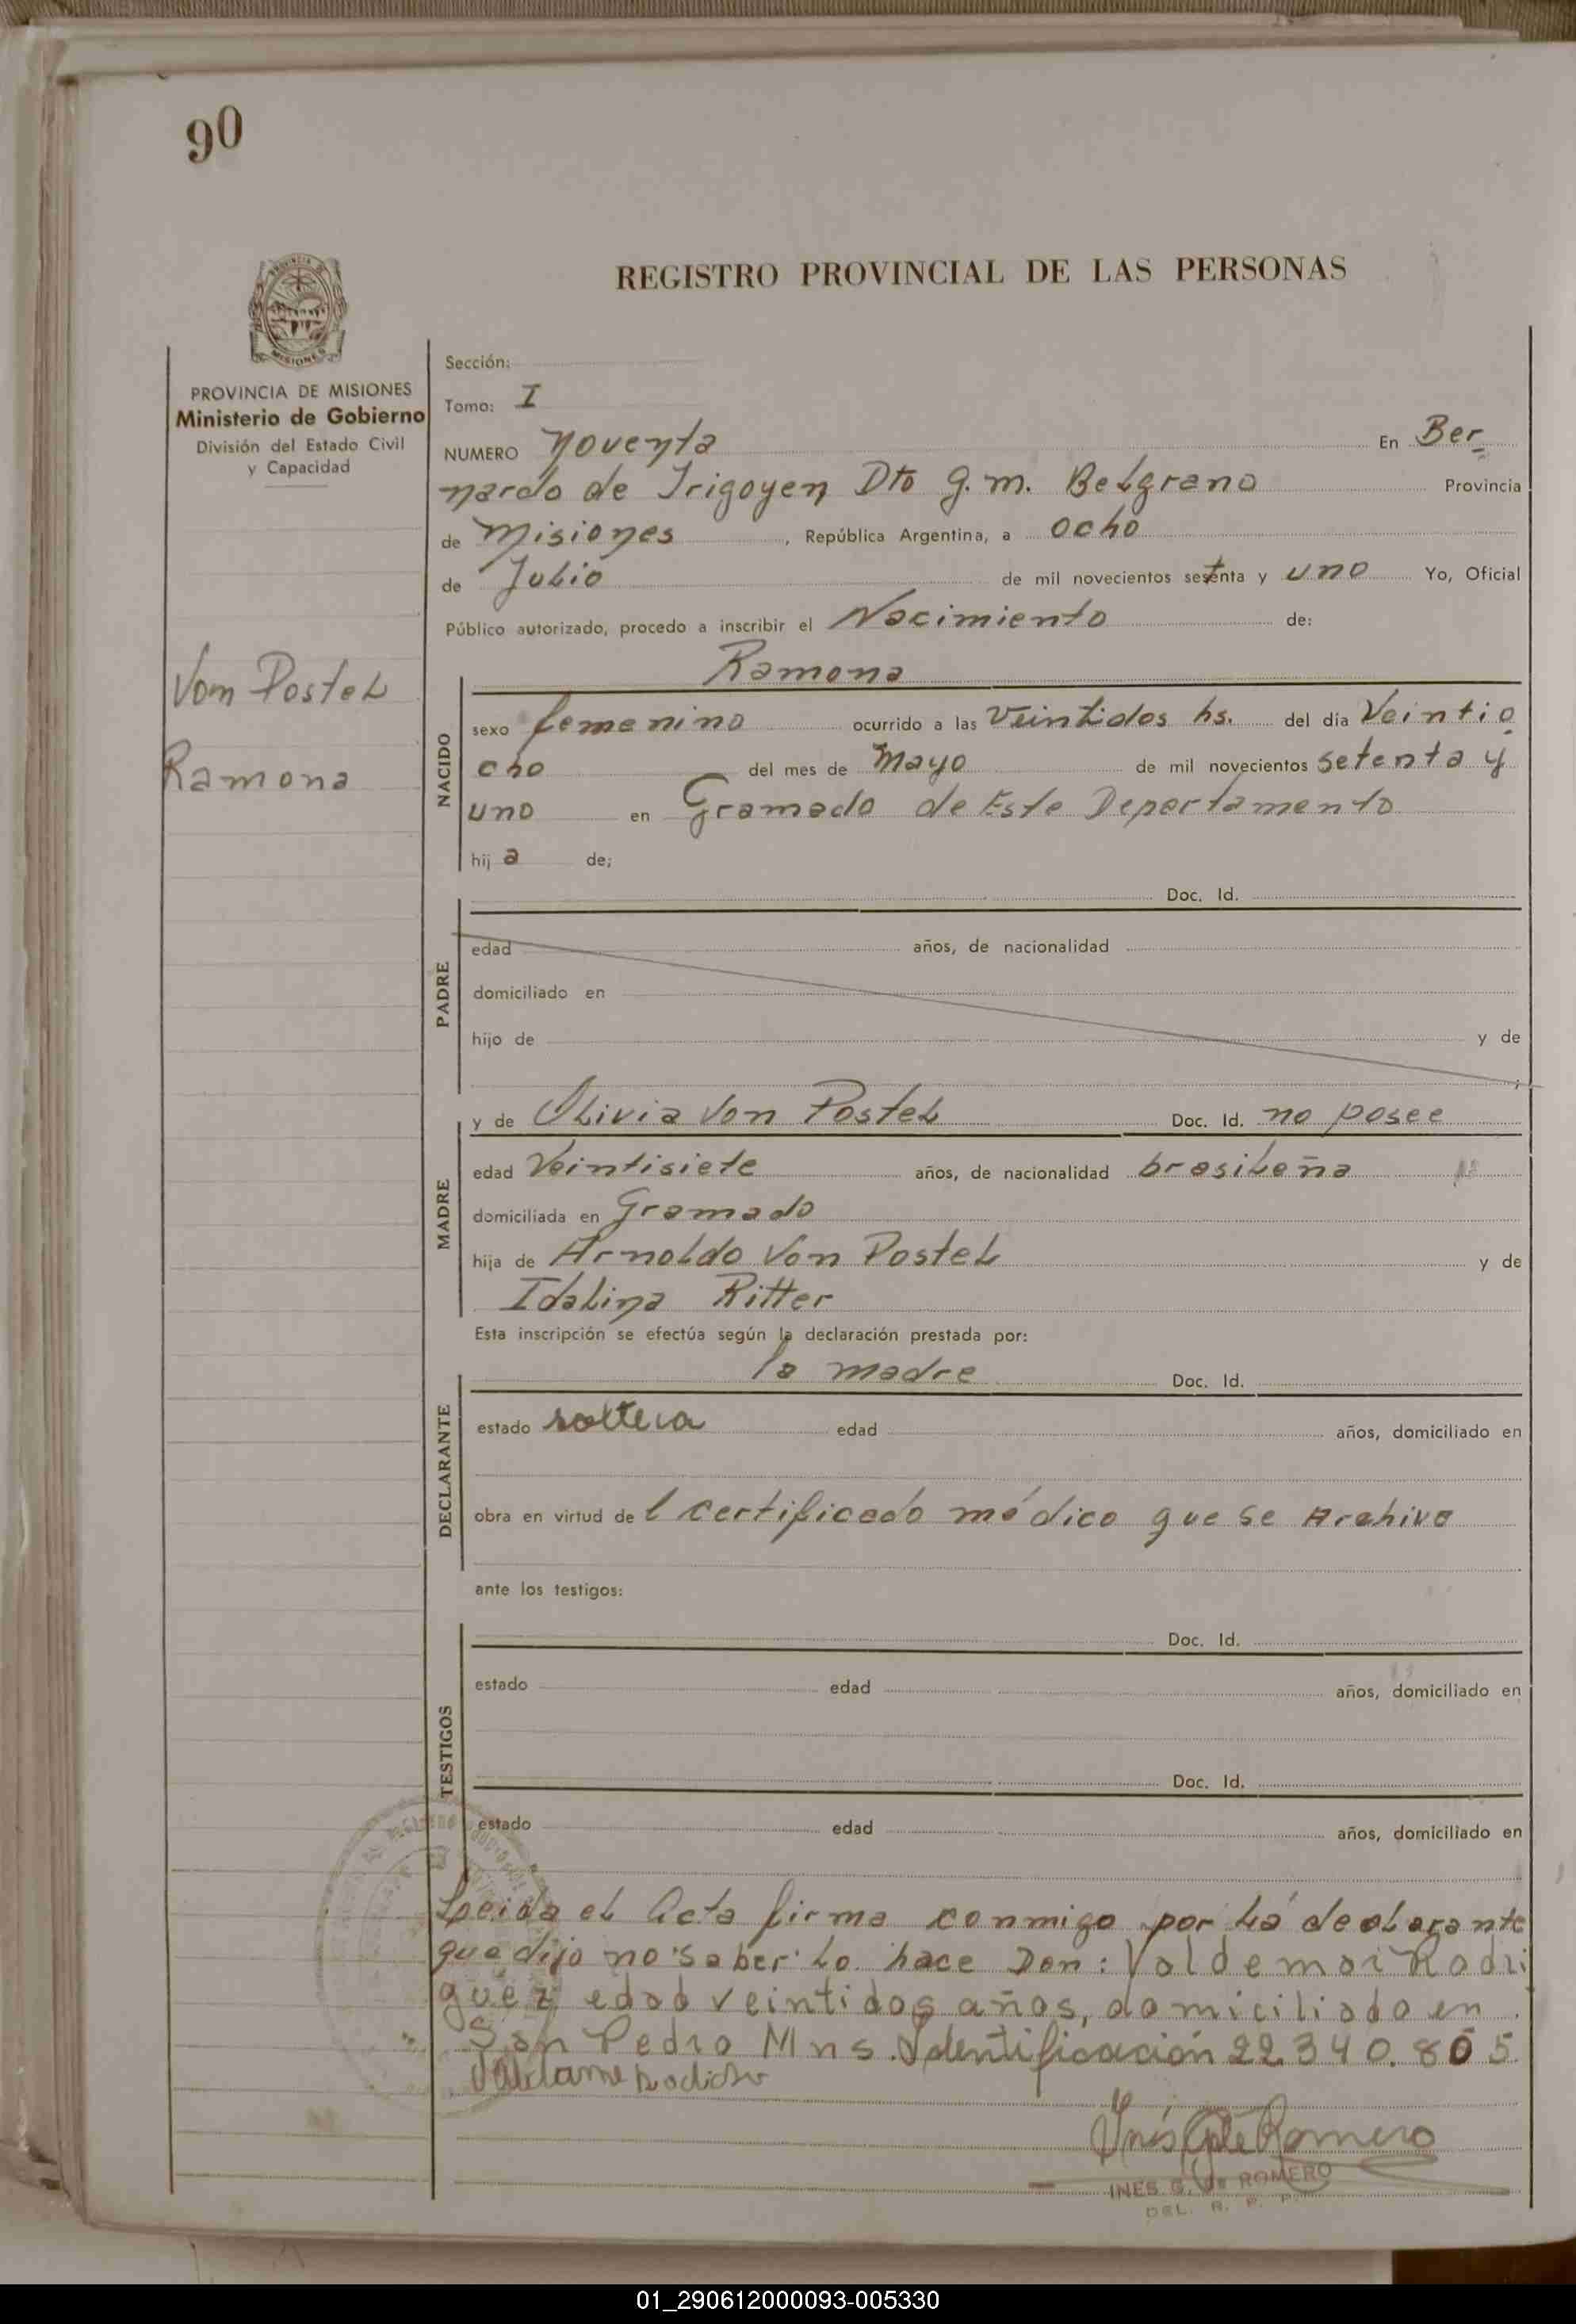 90
REGISTRO PROVINCIAL DE LAS PERSONAS
MISIONES
PROVINCIA DE MISIONES
Ministerio de Gobierno
División del Estado Civil
y Capacidad
Vom Postel
Ramona
Sección:
Tomo: I
NUMERO Noventa En Ber-
nardo de Irigoyen Dto G. M. Belgrano Provincia
de Misiones, República Argentina, a ocho
de Julio de mil novecientos setenta y uno Yo, Oficial
Público autorizado, procedo a inscribir el Nacimiento de:
Ramona
NACIDO
sexo femenino ocurrido a las Veintidos hs. del día Veintio
cho del mes de Mayo de mil novecientos setenta y
uno en Gramado de Este Departamento
hija de;
PADRE
Doc. Id.
edad años, de nacionalidad
domiciliado en
hijo de y de
MADRE
y de Olivia Von Postel Doc. Id. no posee
edad Veintisiete años, de nacionalidad brasileña
domiciliada en Gramado
hija de Arnoldo Von Postel y de
Idalina Ritter
Esta inscripción se efectúa según la declaración prestada por:
DECLARANTE
la madre Doc. Id.
estado soltera edad años, domiciliado en
obra en virtud del certificado médico que se Archiva
ante los testigos:
TESTIGOS
Doc. Id.
estado edad años, domiciliado en
Doc. Id.
estado edad años, domiciliado en
Leida el Acta firma conmigo por la declarante
que dijo no saber lo hace Don: Valdemar Rodri
guez edad veintidos años, domiciliado en
San Pedro Mns. Identificación 22.340.805
Inés G. de Romero
INES G. de ROMERO
DEL. R. P. P.
01_290612000093-005330